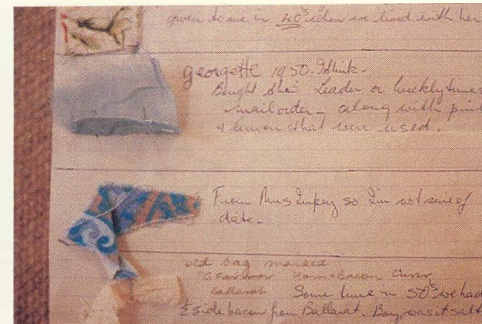 given to me in 40s when we lived with her
georgette 1950. I think.
Bought Leader or Weekly Times
mail order - along with pink
& lemon that were used.
From Mrs so I'm not sure of
date.
old bag marked
bacon curer
Ballarat Some time in 50s we had
side bacon from Ballarat. Bag was it salt